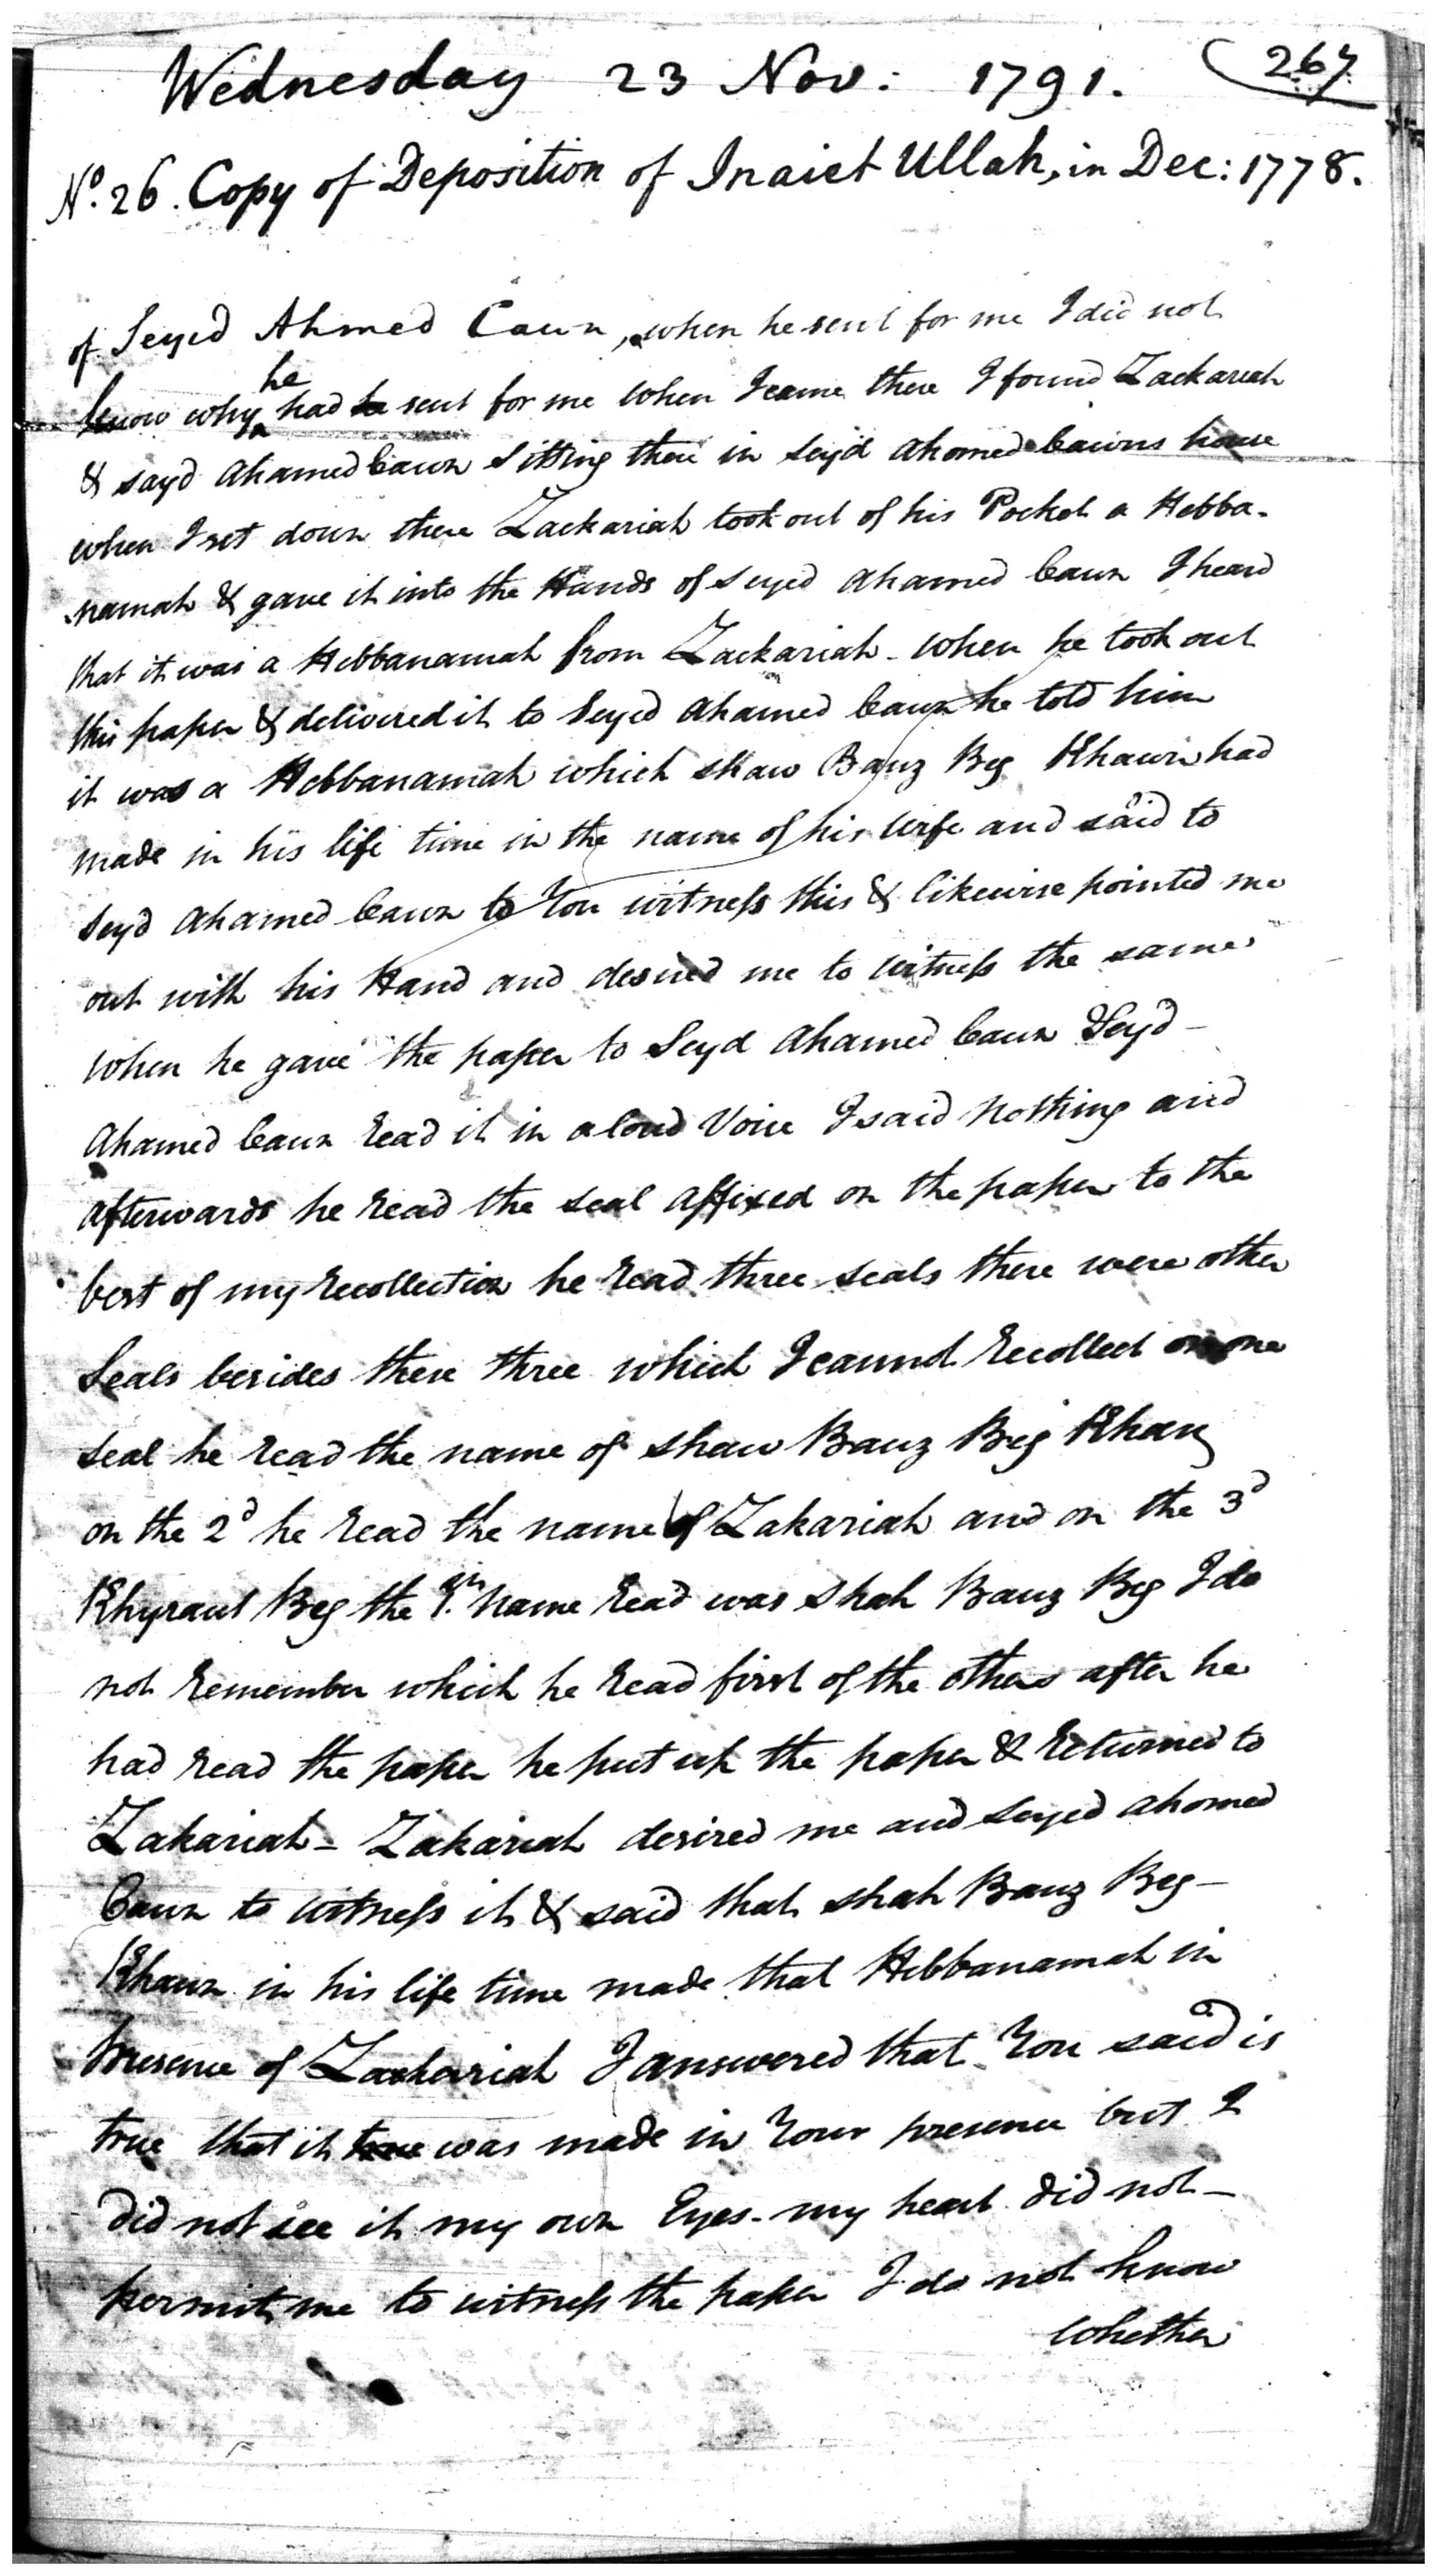 Wednesday 23 Nov: 1791. 267
No. 26. Copy of Deposition of Inaiet Ullah, in Dec: 1778.
of Seyed Ahmed Caun, when he sent for me I did not
he
know why had he sent for me when I came there I found Zackariah
& sayd Ahamed Caun sitting there in seyd Ahomed Cawns house
when I set down there Zackariah took out of his Pocket a Hebba-
namah & gave it into the Hands of seyed Ahamed Caun I heard
that it was a Hebbanamah from Zackariah - when he took out
this paper & delivered it to Seyed Ahamed Caun he told him
it was a Hebbanamah which shaw Bauz Beg Khawn had
made in his life time in the name of his wife and said to
Seyd Ahamed Caun to You witness this & likewise pointed me
out with his Hand and desired me to witness the same
when he gave the paper to Seyd Ahamed Caun Seyd -
Ahamed Caun read it in a loud Voice I said nothing and
afterwards he read the seal affixed on the paper to the
best of my recollection he read three seals there were other
Seals besides these three which I cannot recollect on one
seal he read the name of shaw Bauz Beg Khan
on the 2d he read the name of Zakariah and on the 3d
Khyraut Beg the name read was Shah Bauz Beg I do
not remember which he read first of the others after he
had read the paper he put up the paper & returned to
Zakariah - Zakariah desired me and seyed ahomed
Caun to witness it & said that shah Bauz Beg -
Khaun in his life time made that Hebbanamah in
Presence of Zackariah I answered that You said is
true that it true was made in Your presence but I
did not see it my own Eyes - my heart did not -
permit me to witness the paper I do not know
whether